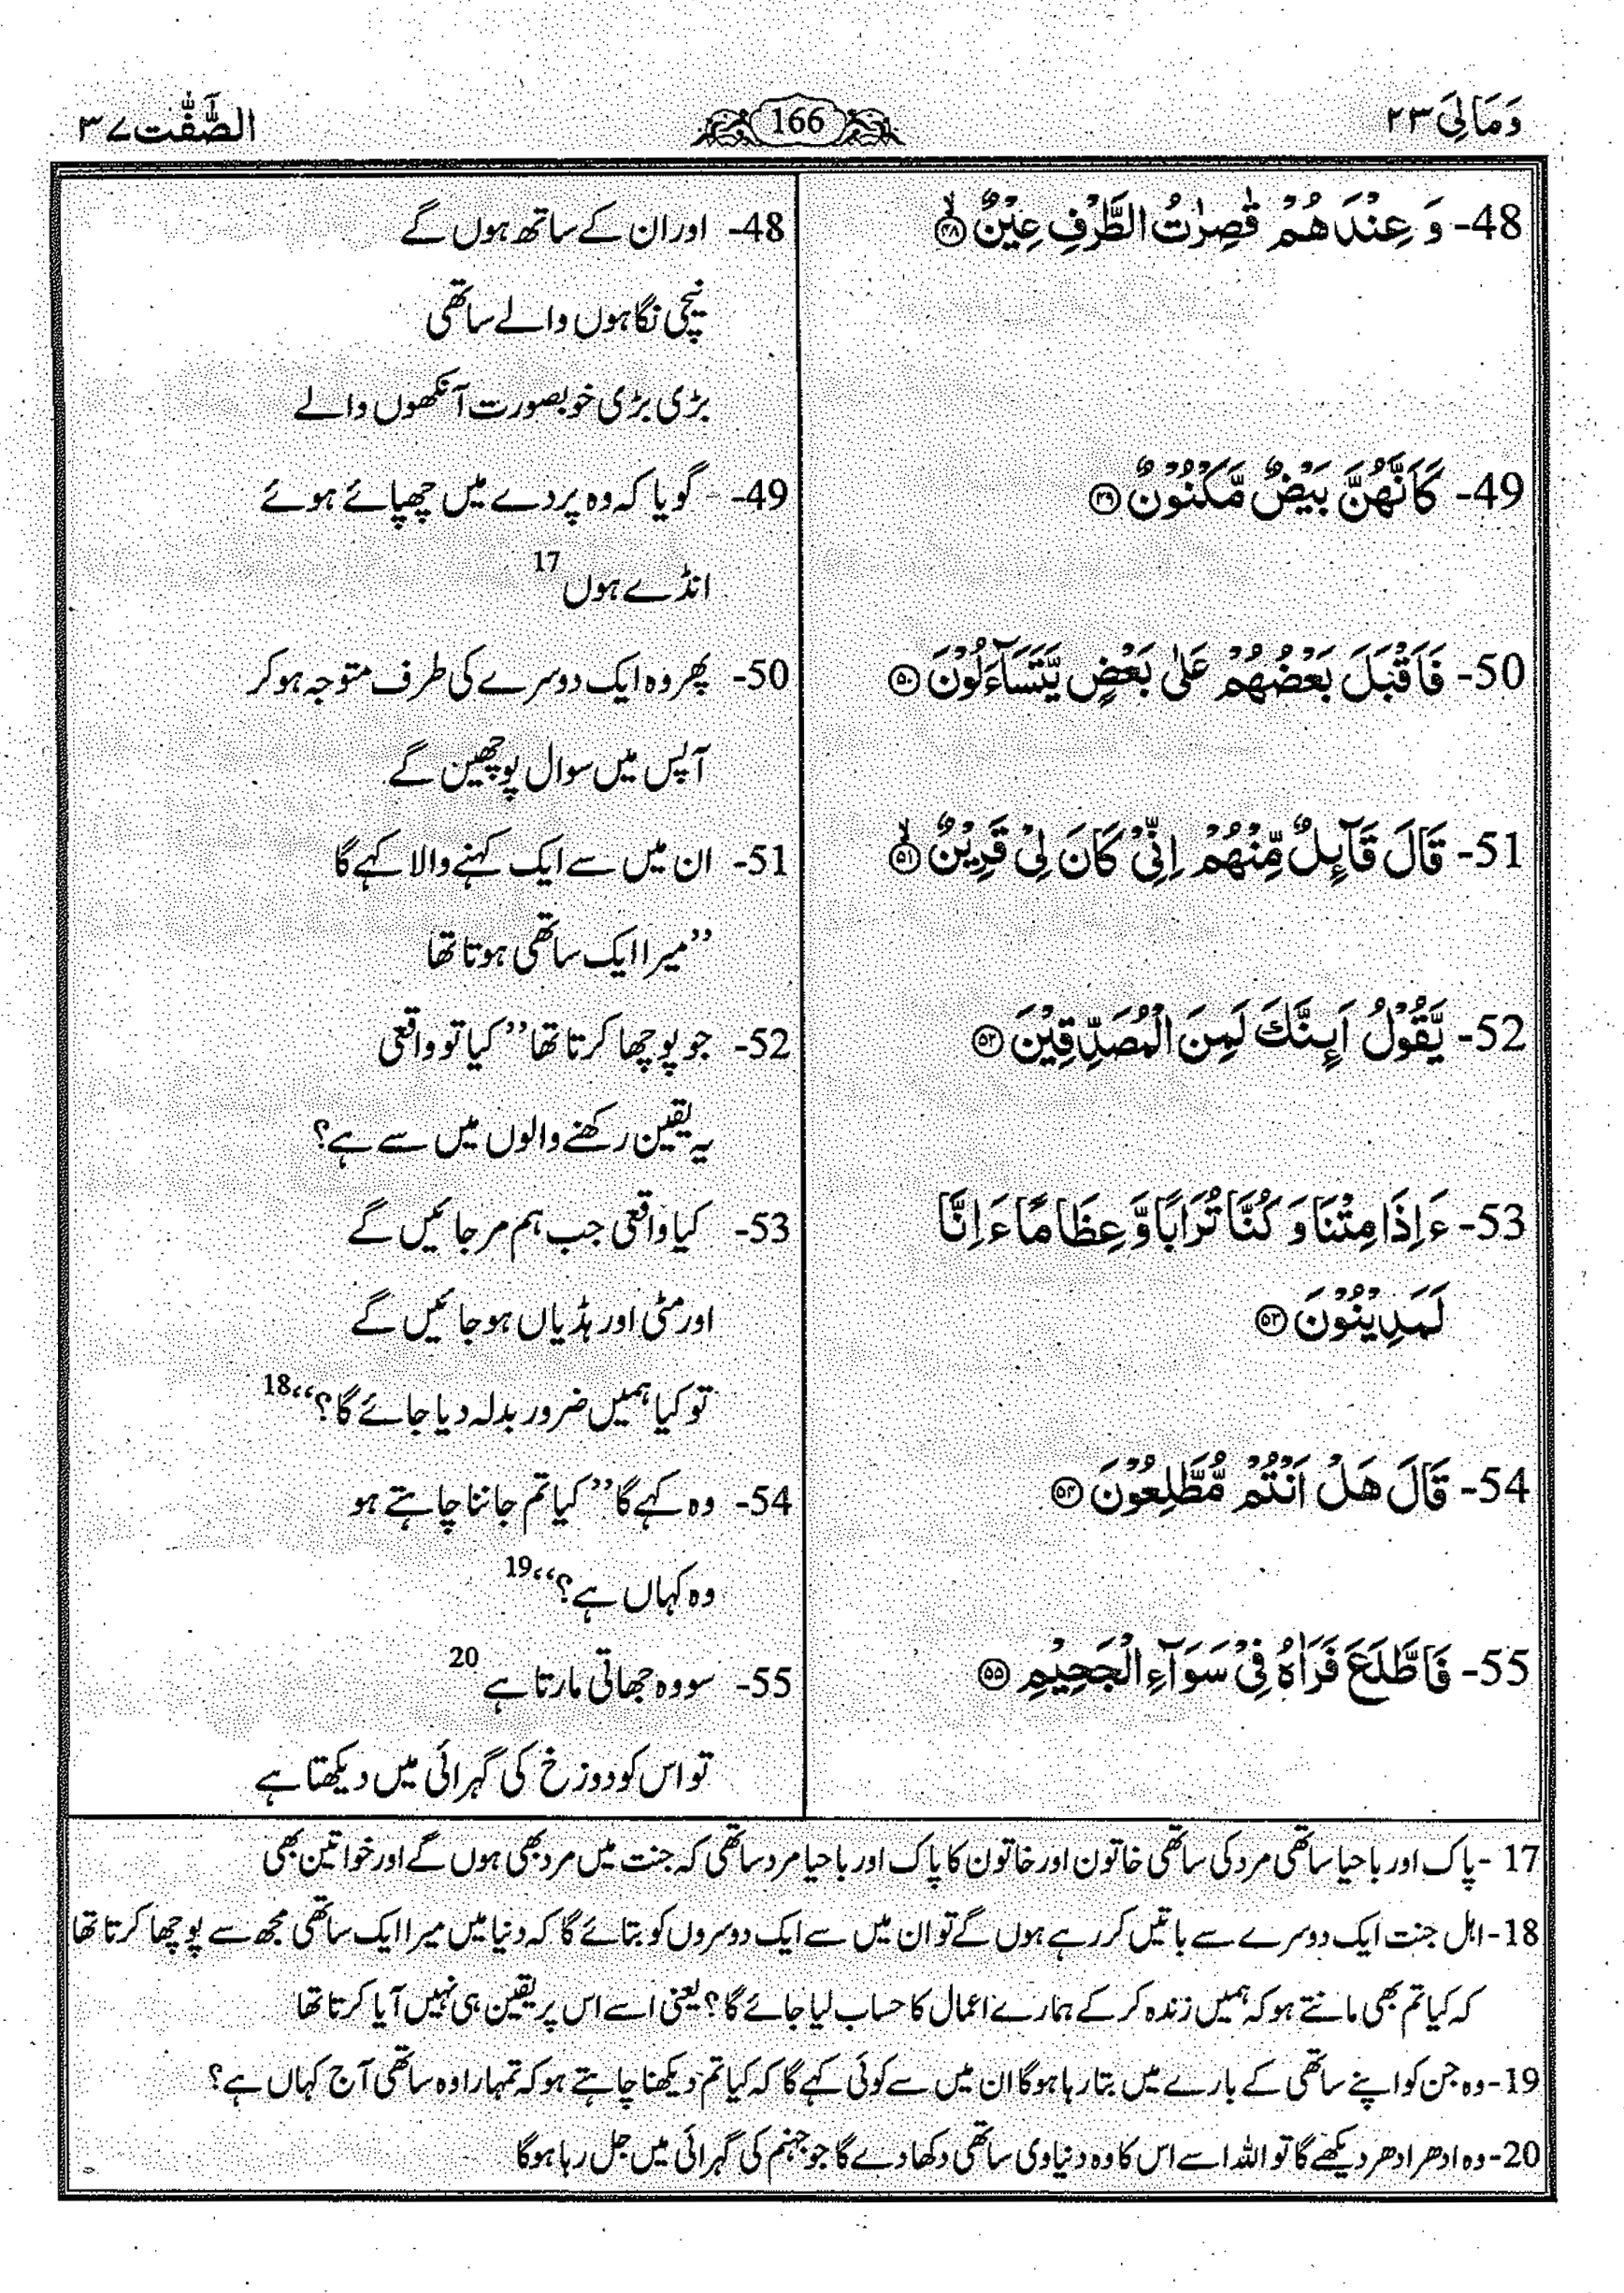 وَمَالِیَ ۲۳
166
الصّٰٓفّٰت ۳۷
48- وَ عِنْدَهُمْ قٰصِرٰتُ الطَّرْفِ عِيْنٌ ۙ﴿۴۸﴾
49- كَاَنَّهُنَّ بَيْضٌ مَّكْنُوْنٌ ﴿۴۹﴾
50- فَاَقْبَلَ بَعْضُهُمْ عَلٰى بَعْضٍ يَّتَسَآءَلُوْنَ ﴿۵۰﴾
51- قَالَ قَآىِٕلٌ مِّنْهُمْ اِنِّيْ كَانَ لِيْ قَرِيْنٌ ۙ﴿۵۱﴾
52- يَّقُوْلُ اَىِٕنَّكَ لَمِنَ الْمُصَدِّقِيْنَ ﴿۵۲﴾
53- ءَاِذَا مِتْنَا وَ كُنَّا تُرَابًا وَّ عِظَامًا ءَاِنَّا
لَمَدِيْنُوْنَ ﴿۵۳﴾
54- قَالَ هَلْ اَنْتُمْ مُّطَّلِعُوْنَ ﴿۵۴﴾
55- فَاطَّلَعَ فَرَاٰهُ فِيْ سَوَآءِ الْجَحِيْمِ ﴿۵۵﴾
48- اور ان کے ساتھ ہوں گے
نیچی نگاہوں والے ساتھی
بڑی بڑی خوبصورت آنکھوں والے
49- گویا کہ وہ پردے میں چھپائے ہوئے
انڈے ہوں 17
50- پھر وہ ایک دوسرے کی طرف متوجہ ہو کر
آپس میں سوال پوچھیں گے
51- ان میں سے ایک کہنے والا کہے گا
”میرا ایک ساتھی ہوتا تھا
52- جو پوچھا کرتا تھا ”کیا تو واقعی
یہ یقین رکھنے والوں میں سے ہے؟
53- کیا واقعی جب ہم مر جائیں گے
اور مٹی اور ہڈیاں ہو جائیں گے
تو کیا ہمیں ضرور بدلہ دیا جائے گا؟“ 18
54- وہ کہے گا ”کیا تم جاننا چاہتے ہو
وہ کہاں ہے؟“ 19
55- سو وہ جھاتی مارتا ہے 20
تو اس کو دوزخ کی گہرائی میں دیکھتا ہے
17- پاک اور باحیا ساتھی مرد کی ساتھی خاتون اور خاتون کا پاک اور باحیا مرد ساتھی کہ جنت میں مرد بھی ہوں گے اور خواتین بھی
18- اہل جنت ایک دوسرے سے باتیں کر رہے ہوں گے تو ان میں سے ایک دوسروں کو بتائے گا کہ دنیا میں میرا ایک ساتھی مجھ سے پوچھا کرتا تھا
کہ کیا تم بھی مانتے ہو کہ ہمیں زندہ کر کے ہمارے اعمال کا حساب لیا جائے گا؟ یعنی اسے اس پر یقین ہی نہیں آیا کرتا تھا
19- وہ جن کو اپنے ساتھی کے بارے میں بتا رہا ہوگا ان میں سے کوئی کہے گا کہ کیا تم دیکھنا چاہتے ہو کہ تمہارا وہ ساتھی آج کہاں ہے؟
20- وہ ادھر ادھر دیکھے گا تو اللہ اسے اس کا وہ دنیاوی ساتھی دکھا دے گا جو جہنم کی گہرائی میں جل رہا ہوگا